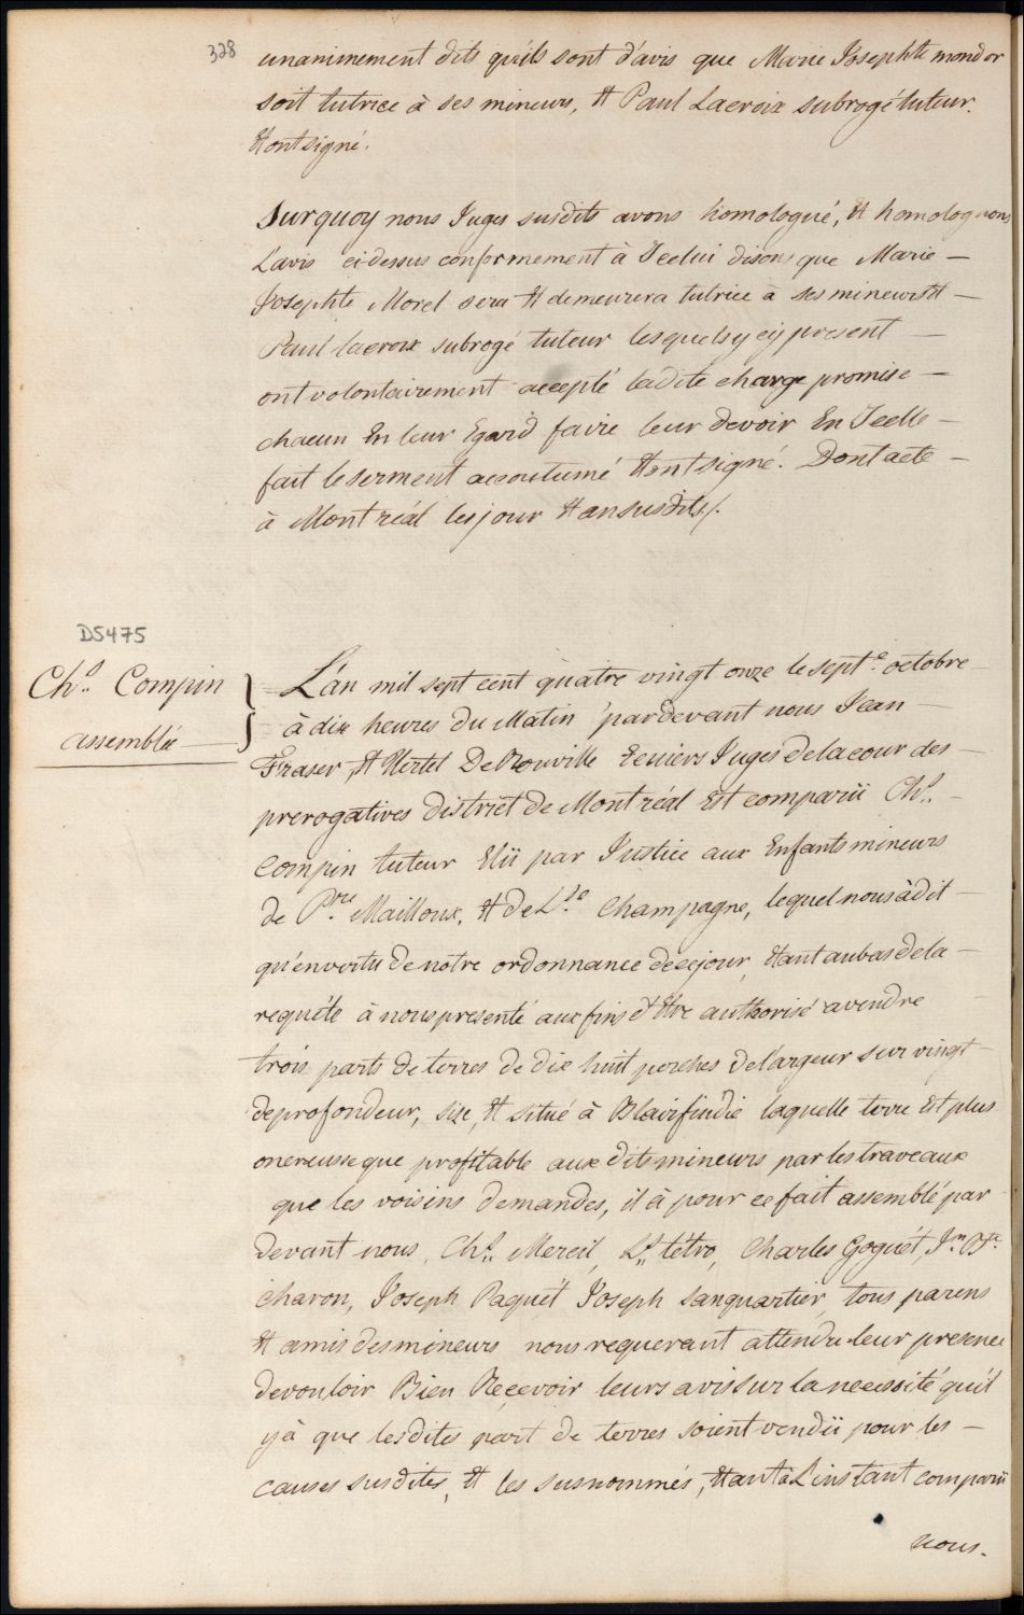 328 unanimement dits qu'ils sont d'avis que Marie Josephte mondor
soit tutrice à ses mineurs, Et Paul Lacroix subrogé tuteur.
Et ont signé.
Surquoy nous Juges susdits avons homologué, Et homologuons
Lavis ci dessus conformement à Icelui disons que Marie —
Josephte Morel sera Et demeurera tutrice à ses mineurs Et —
Paul lacroix subrogé tuteur lesquels y cy present —
ont volontairement accepté ladite charge promise —
chacun En leur Egard faire leur devoir En Icelle —
fait le serment accoutumé Et ont signé. Dont acte —
à Montréal les jour Et an susdits/.
D5475
Chs. Compin
assemblée
L'an mil sept cent quatre vingt onze le septe. octobre
à dix heures du Matin par devant nous Jean —
Fraser, Et Hertel De Rouville Ecuiers Juges de la cour des —
prerogatives district de Montréal Est comparü Chs. —
Compin tuteur Elü par Justice aux Enfants mineurs
de Prre. Mailloux, Et de Lse. Champagne, lequel nous à dit —
qu'en vertu de notre ordonnance de ce jour, Etant au bas de la —
requéte à nous presenté aux fins d'Etre authorisé a vendre
trois parts de terres de dix huit perches de largeur sur vingt
de profondeur, size, Et situé à Blairfindie laquelle terre Est plus
onereusse que profitable aux dits mineurs par les traveaux
que les voisins demandes, il à pour ce fait assemblé par
devant nous, Chs. Mercil, Ls. tétro, Charles Goguét, Jn. Bte.
Charon, Joseph Paquét Joseph Sanquartier, tous parens
Et amis des mineurs nous requerant attendu leur presence
de vouloir Bien Recevoir leurs avis sur la necessité qu'il
y à que lesdites part de terres soient vendü pour les —
causes susdites, Et les susnommés, Etant à L'instant comparü
nous.